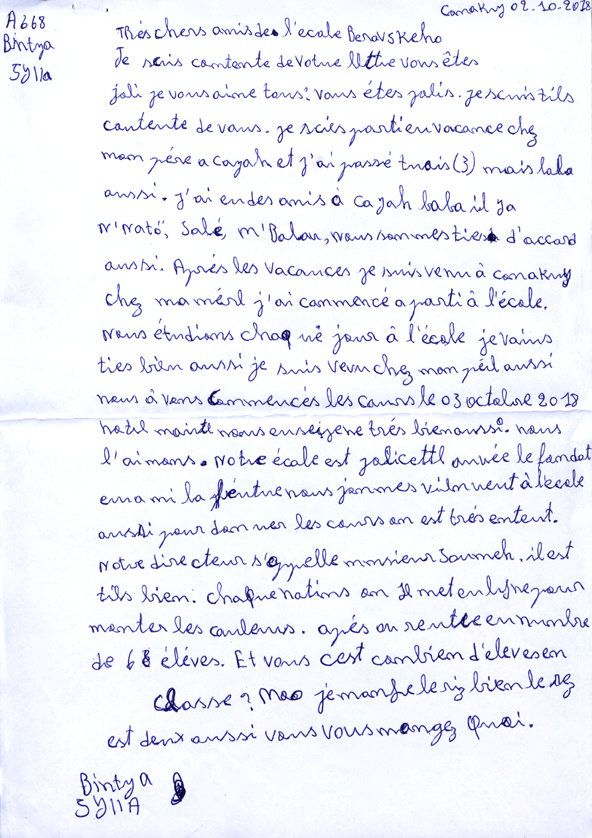 A668
Bintya
Sylla
Conakry 02.10.2018
Trés chers amis de l'écale Beravskeho
Je suis cantente de votre lettre vous êtes
jali je vous aime tous! vous étes jalis. je suis
cantente de vans. je suis parti en vacance chez
mon pére a cayah et j'ai passé trais (3) mais
aussi. J'ai en des amis à cayah baba il ya
N'Natö, Salé, M'Balau, nous sommes d'accard
aussi. Aprés les vacances je suis venu à canakry
chez ma j'ai cammencé a parti à l'école.
Nous étudians chaq ue jour à l'école je
bien aussi je suis venu chez mon aussi
nous à vans Cammencés les caurs le 03 octobre 2018
nous enseigene trés bien aussi. nous
l'aimans. Notre école est jali année le
la nous à l'ecale
aussi pour dan ner les cours an est trés entent.
Notre directeur s'appelle monsieur Soumeh. il est
bien. chaque an se met en ligne pour
manter les cauleurs. aprés an rentre en nombre
de 68 éléves. Et vaus c'est cambien d'eleves en
classe? Moo je mange le riz bien le riz
est aussi vans vous mangez Quoi.
Bintya
SyllA